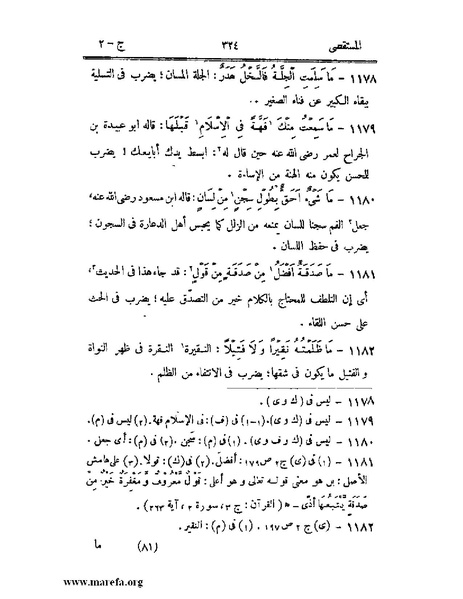 المستقصى ٣٢٤ ج – ٢
١١٧٨ – مَا سَلِمَتِ الْجِلَّةُ فَالسَّخْلُ هَدَرٌ : الجلة المسان ؛ يضرب فى التسلية
ببقاء الكبير عن فناء الصغير .
١١٧٩ – مَا سَمِعْتُ مِنْكَ ١فَهَّةً فِى الْاِسْلَامِ١ قَبْلَهَا : قاله ابو عبيدة بن
الجراح لعمر رضى الله عنه حين قال له٢ : ابسط يدك أبايعك ؛ يضرب
للحسن يكون منه الهنة من الإساءة .
١١٨٠ – مَا شَىْءٌ اَحَقُّ بِطُولِ سِجْنٍ١ مِنْ لِسَانٍ : قاله ابن مسعود رضى الله عنه،
جعل٢ الفم سجنا للسان يمنعه من الزلل كما يحبس أهل الدعارة فى السجون ؛
يضرب فى حفظ اللسان .
١١٨١ – مَا صَدَقَةٌ اَفْضَلُ١ مِنْ صَدَقَةٍ مِنْ قَوْلٍ٢ : قد جاء هذا فى الحديث٣،
أى إن التلطف للمحتاج بالكلام خير من التصدّق عليه ؛ يضرب فى الحث
على حسن اللقاء .
١١٨٢ – مَا ظَلَمْتُهُ نَقِيْرًا وَ لَا فَتِيْلًا : النقيرة١ النقرة فى ظهر النواة
و الفتيل ما يكون فى شقها؛ يضرب فى الانتفاء من الظلم .
١١٧٨ – ليس فى (ك و ى) .
١١٧٩ – ليس فى (ك و ى). (١–١) فى (ف): فى الإسلام فهة. (٢) ليس فى (م).
١١٨٠ – ليس فى (ك و ف و ى) . (١) فى (م): سَجن . (٢) فى (م): أى جعل .
١١٨١ – (١) فى (ى) ج ٢ ص ١٩٦: أفضلَ. (٢) فى (ك): قولا. (٣) على هامش
الأصل : بر هو معنى قوله تعالى و هو أعلى : قَوْلٌ مَعْرُوْفٌ وَّ مَغْفِرَةٌ خَيْرٌ مِّنْ
صَدَقَةٍ يَّتْبَعُهَا أَذًى – * (القرآن : ج ٣، سورة ٢، آية ٢٦٣) .
١١٨٢ – (ى) ج ٢ ص ١٩٧. (١) فى (م): النقير.
(٨١) ما
www.marefa.org